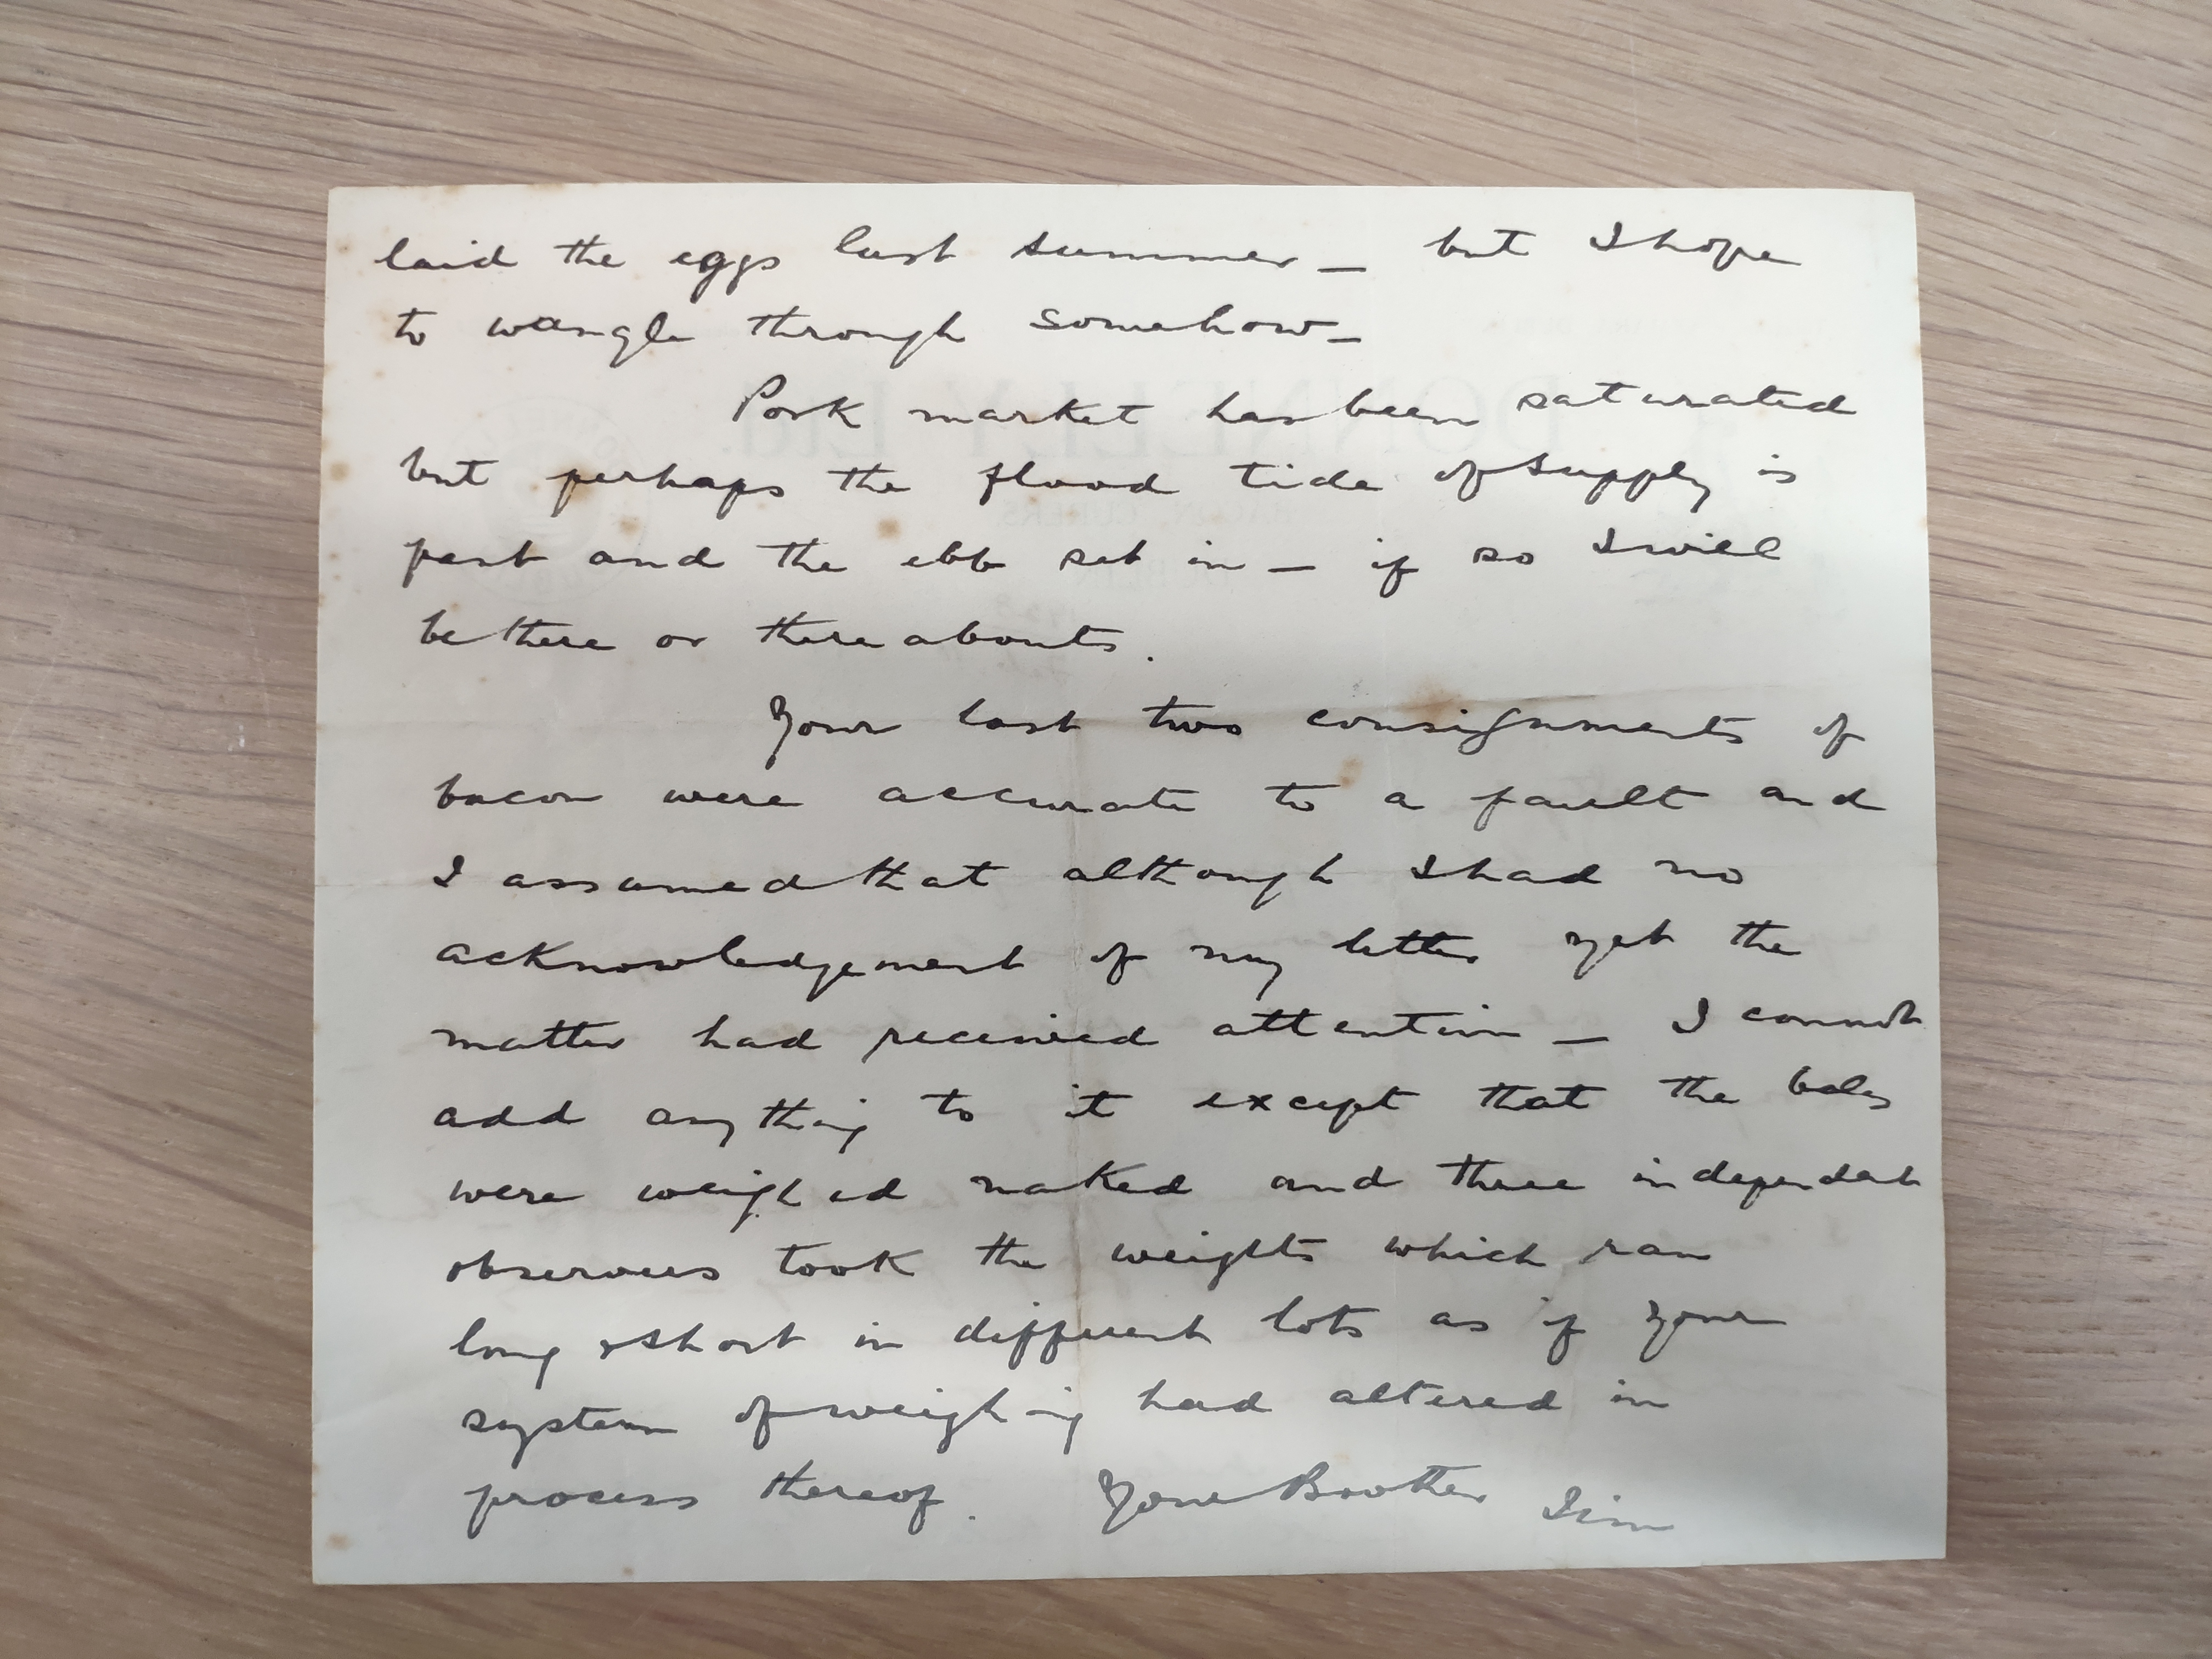 laid the eggs last summer — but I hope
to wangle through somehow —
Pork market has been saturated
but perhaps the flood tide of supply is
past and the ebb set in — if so I will
be there or thereabouts.
Your last two consignments of
bacon were accurate to a fault and
I assumed that although I had no
acknowledgement of my letter yet the
matter had received attention — I cannot
add anything to it except that the bales
were weighed naked and three independent
observers took the weights which ran
long & short in different lots as if your
system of weighing had altered in
process thereof. Your Brother Jim